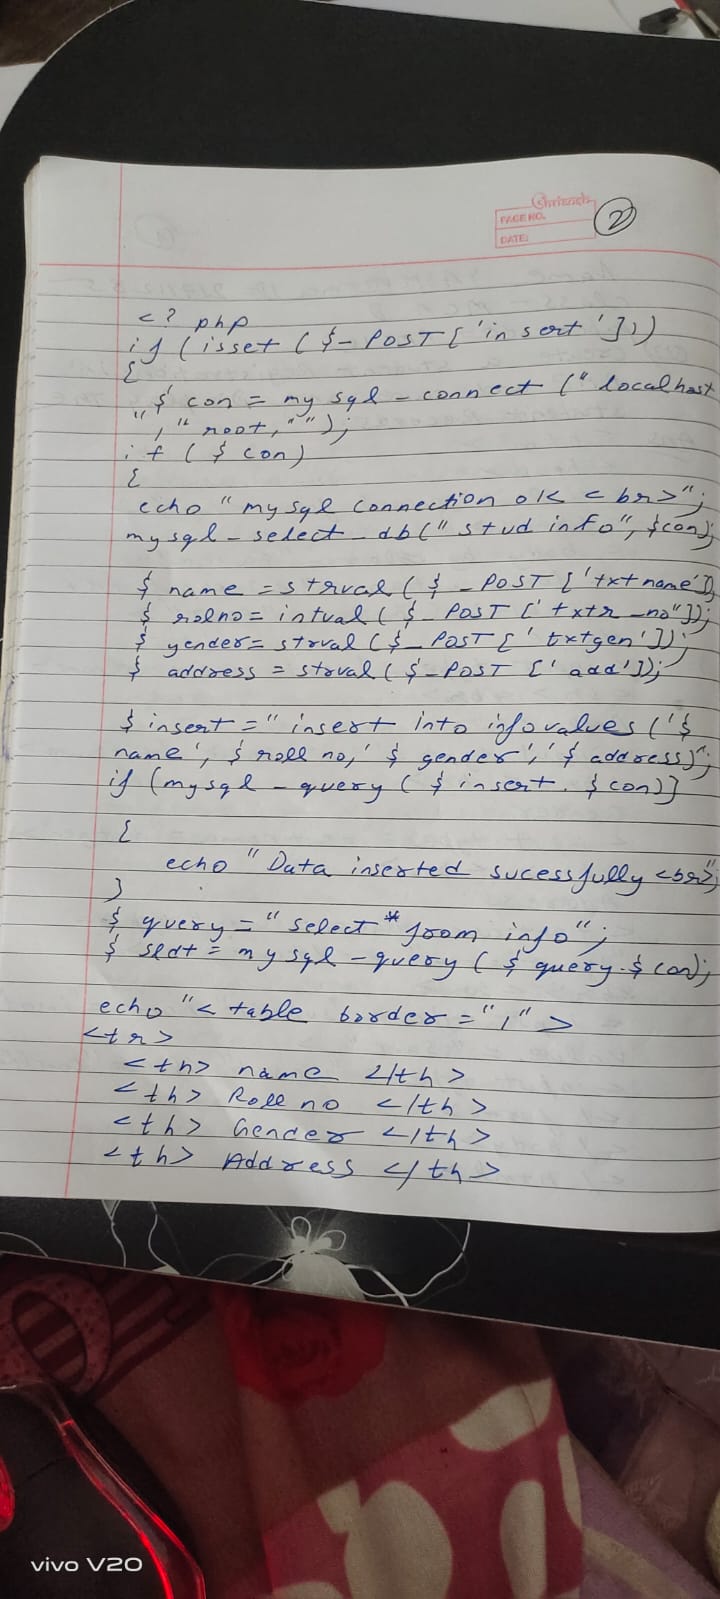 Shrinesh
PAGE NO.
DATE:
2
<? php
if (isset ($_POST['insert']))
{
$ con = mysql - connect ("localhost
", "root, "");
if ($ con)
{
echo "mysql connection ok <br>";
mysql - select _ db("stud info", $con);
$ name = strval ($ _POST ['txtname']);
$ rolno = intval ($_ POST ['txtr_no"]);
$ gender = strval ($_ POST ['txtgen']);
$ address = strval ($_POST ['add']);
$ insert = " insert into info values ('$
name', $ roll no,' $ gender','$ address)";
if (mysql - query ( $ insert. $ con)}
{
echo "Data inserted sucessfully <br>";
}
$ query = "select * from info";
$ sldt = mysql - query ($ query.$ con);
echo "< table border = "1" >
<tr>
<th> name </th>
<th> Roll no </th>
<th> Gender </th>
<th> Address </th>
vivo V20